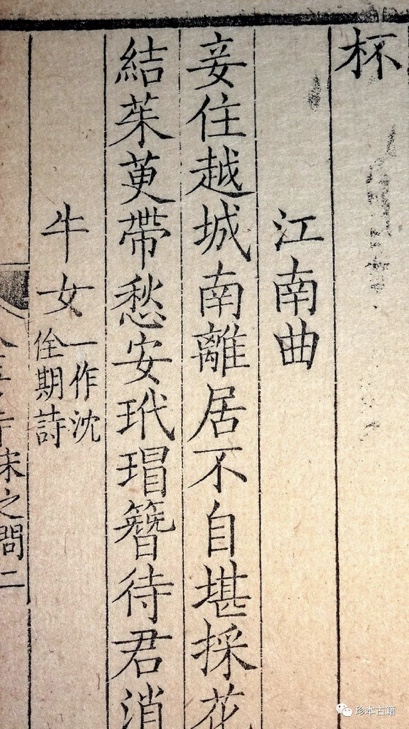 杯
江南曲
妾住越城南離居不自堪採花
結茱萸帶愁安玳瑁簪待君消
牛女一作沈
佺期詩
宋之問二
珍本古籍